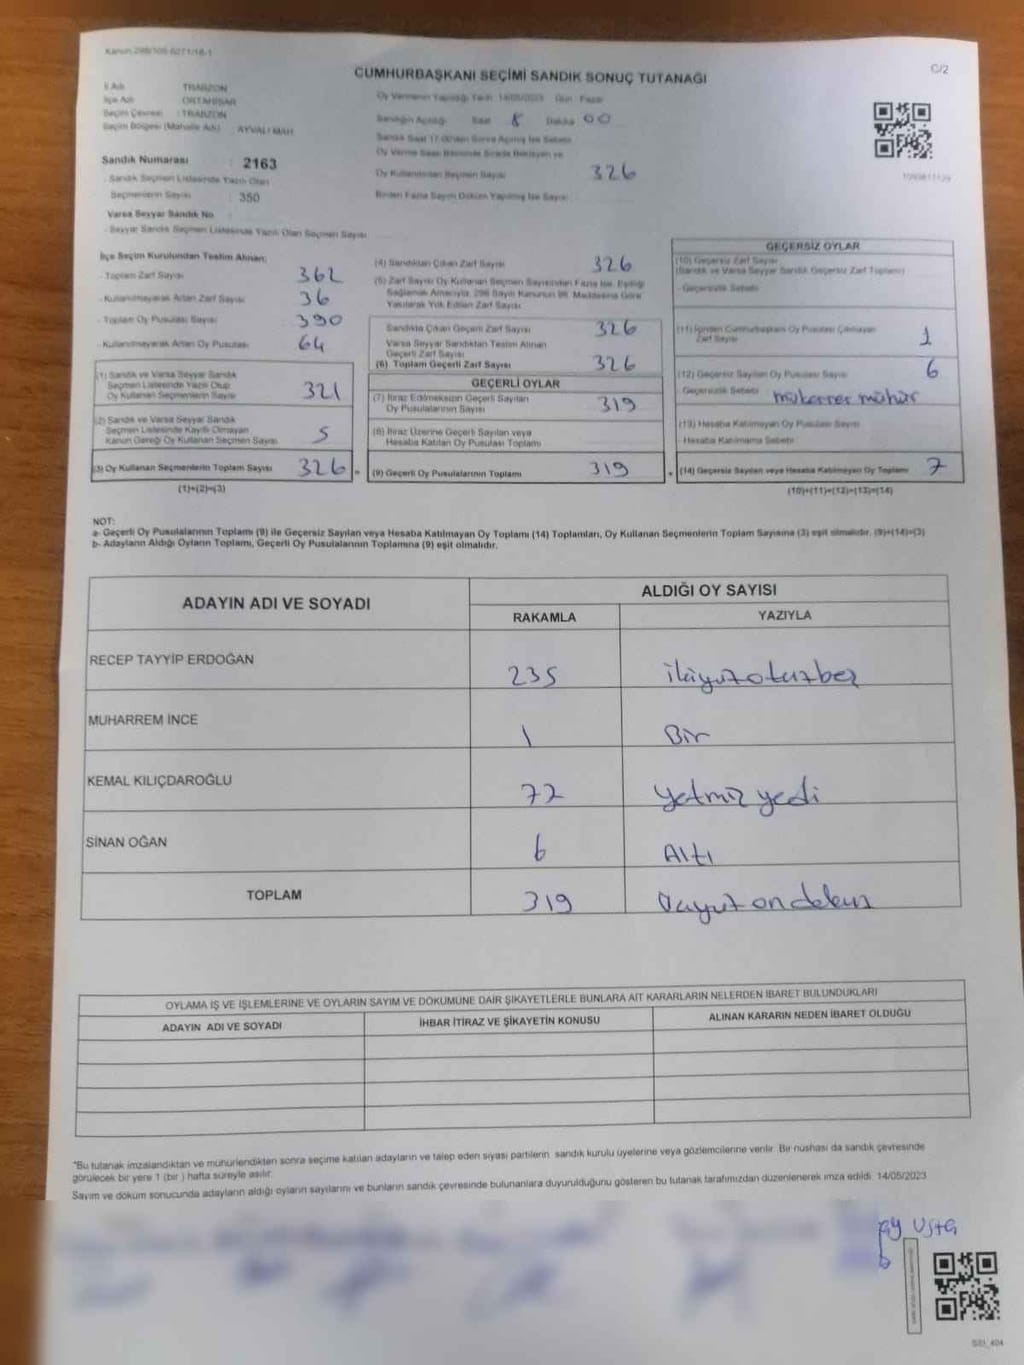 Kanun 298/105-6271/18-1
C/2
CUMHURBAŞKANI SEÇİMİ SANDIK SONUÇ TUTANAĞI
İl Adı : TRABZON
İlçe Adı : ORTAHİSAR
Seçim Çevresi : TRABZON
Seçim Bölgesi (Mahalle Adı) : AYVALI MAH.
Sandık Numarası : 2163
- Sandık Seçmen Listesinde Yazılı Olan
Seçmenlerin Sayısı : 350
Varsa Seyyar Sandık No
- Seyyar Sandık Seçmen Listesinde Yazılı Olan Seçmen Sayısı
Oy Vermenin Yapıldığı Tarih 14/05/2023 Gün Pazar
Sandığın Açıldığı Saat 8 Dakika 00
Sandık Saat 17:00'den Sonra Açılmış İse Sebebi
Oy Verme Saati Bitiminde Sırada Bekleyen ve
Oy Kullandırılan Seçmen Sayısı 326
Birden Fazla Sayım Döküm Yapılmış İse Sayısı
İlçe Seçim Kurulundan Teslim Alınan;
- Toplam Zarf Sayısı 362
- Kullanılmayarak Artan Zarf Sayısı 36
- Toplam Oy Pusulası Sayısı 390
- Kullanılmayarak Artan Oy Pusulası 64
(1) Sandık ve Varsa Seyyar Sandık
Seçmen Listesinde Yazılı Olup
Oy Kullanan Seçmenlerin Sayısı 321
(2) Sandık ve Varsa Seyyar Sandık
Seçmen Listesinde Kayıtlı Olmayan
Kanun Gereği Oy Kullanan Seçmen Sayısı 5
(3) Oy Kullanan Seçmenlerin Toplam Sayısı 326
(1)+(2)=(3)
(4) Sandıktan Çıkan Zarf Sayısı 326
(5) Zarf Sayısı Oy Kullanan Seçmen Sayısından Fazla İse, Eşitliği
Sağlamak Amacıyla, 298 Sayılı Kanunun 98. Maddesine Göre
Yakılarak Yok Edilen Zarf Sayısı
Sandıkta Çıkan Geçerli Zarf Sayısı 326
Varsa Seyyar Sandıktan Teslim Alınan
Geçerli Zarf Sayısı
(6) Toplam Geçerli Zarf Sayısı 326
GEÇERLİ OYLAR
(7) İtiraz Edilmeksizin Geçerli Sayılan
Oy Pusulalarının Sayısı 319
(8) İtiraz Üzerine Geçerli Sayılan veya
Hesaba Katılan Oy Pusulası Toplamı
(9) Geçerli Oy Pusulalarının Toplamı 319
GEÇERSİZ OYLAR
(10) Geçersiz Zarf Sayısı
(Sandık ve Varsa Seyyar Sandık Geçersiz Zarf Toplamı)
- Geçersizlik Sebebi
(11) İçinden Cumhurbaşkanı Oy Pusulası Çıkmayan
Zarf Sayısı 1
(12) Geçersiz Sayılan Oy Pusulası Sayısı 6
- Geçersizlik Sebebi mükerrer mühür
(13) Hesaba Katılmayan Oy Pusulası Sayısı
- Hesaba Katılmama Sebebi
(14) Geçersiz Sayılan veya Hesaba Katılmayan Oy Toplamı 7
(10)+(11)+(12)+(13)=(14)
NOT:
a- Geçerli Oy Pusulalarının Toplamı (9) ile Geçersiz Sayılan veya Hesaba Katılmayan Oy Toplamı (14) Toplamları, Oy Kullanan Seçmenlerin Toplam Sayısına (3) eşit olmalıdır. (9)+(14)=(3)
b- Adayların Aldığı Oyların Toplamı, Geçerli Oy Pusulalarının Toplamına (9) eşit olmalıdır.
ADAYIN ADI VE SOYADI
ALDIĞI OY SAYISI
RAKAMLA YAZIYLA
RECEP TAYYİP ERDOĞAN 235 ikiyüzotuzbeş
MUHARREM İNCE 1 Bir
KEMAL KILIÇDAROĞLU 77 Yetmiş yedi
SİNAN OĞAN 6 Altı
TOPLAM 319 Üçyüz on dokuz
OYLAMA İŞ VE İŞLEMLERİNE VE OYLARIN SAYIM VE DÖKÜMÜNE DAİR ŞİKAYETLERLE BUNLARA AİT KARARLARIN NELERDEN İBARET BULUNDUKLARI
ADAYIN ADI VE SOYADI İHBAR İTİRAZ VE ŞİKAYETİN KONUSU ALINAN KARARIN NEDEN İBARET OLDUĞU
*Bu tutanak imzalandıktan ve mühürlendikten sonra seçime katılan adayların ve talep eden siyasi partilerin sandık kurulu üyelerine veya gözlemcilerine verilir. Bir nüshası da sandık çevresinde
görülecek bir yere 1 (bir) hafta süreyle asılır.
Sayım ve döküm sonucunda adayların aldığı oyların sayılarını ve bunların sandık çevresinde bulunanlara duyurulduğunu gösteren bu tutanak tarafımızdan düzenlenerek imza edildi. 14/05/2023